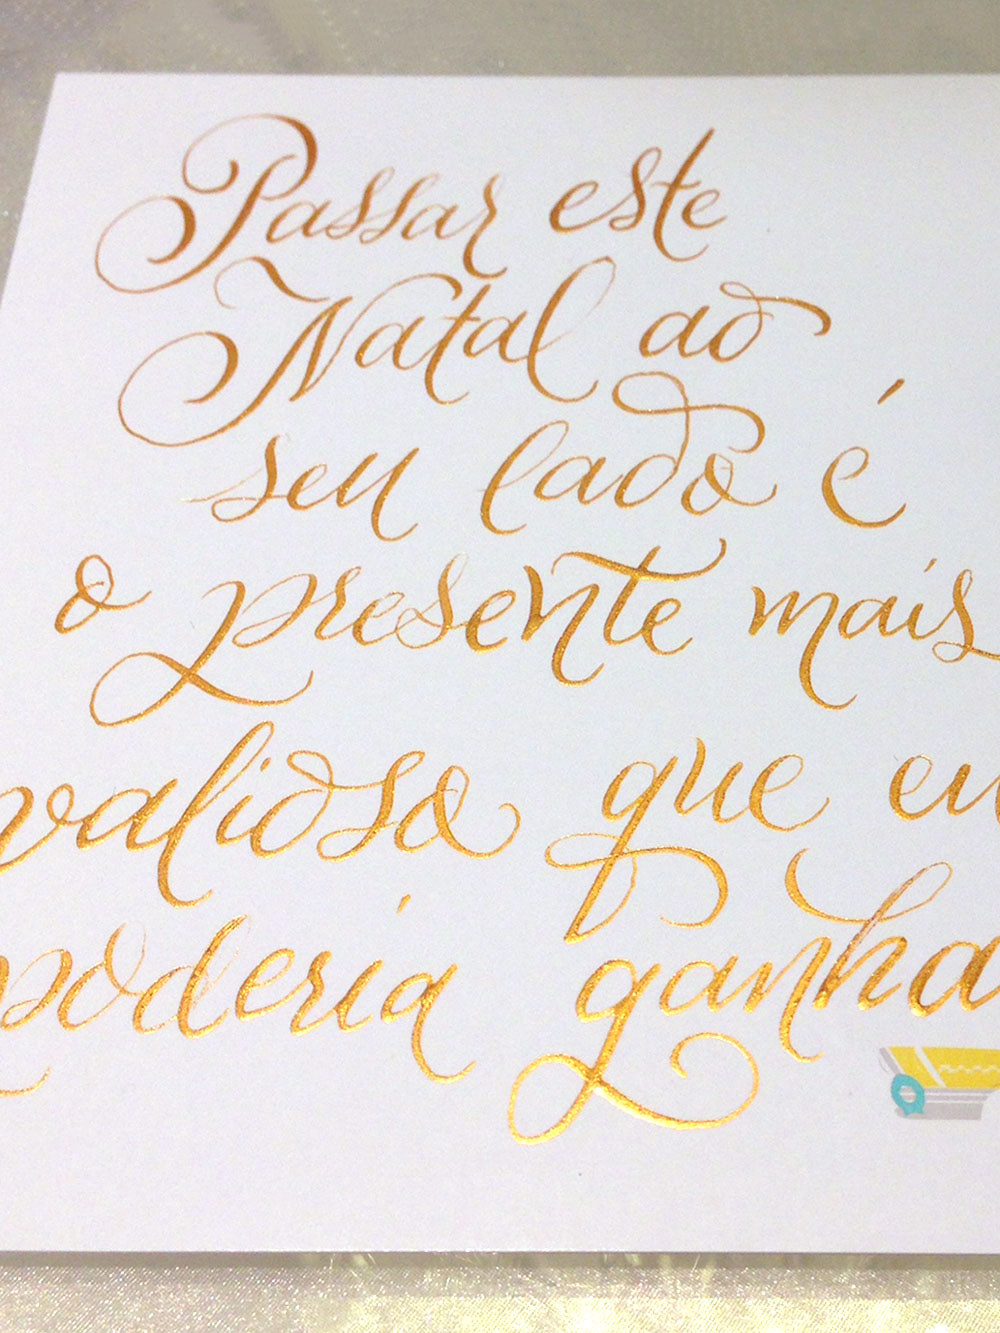 Passar este
Natal ao
seu lado é
o presente mais
valioso que eu
poderia ganha